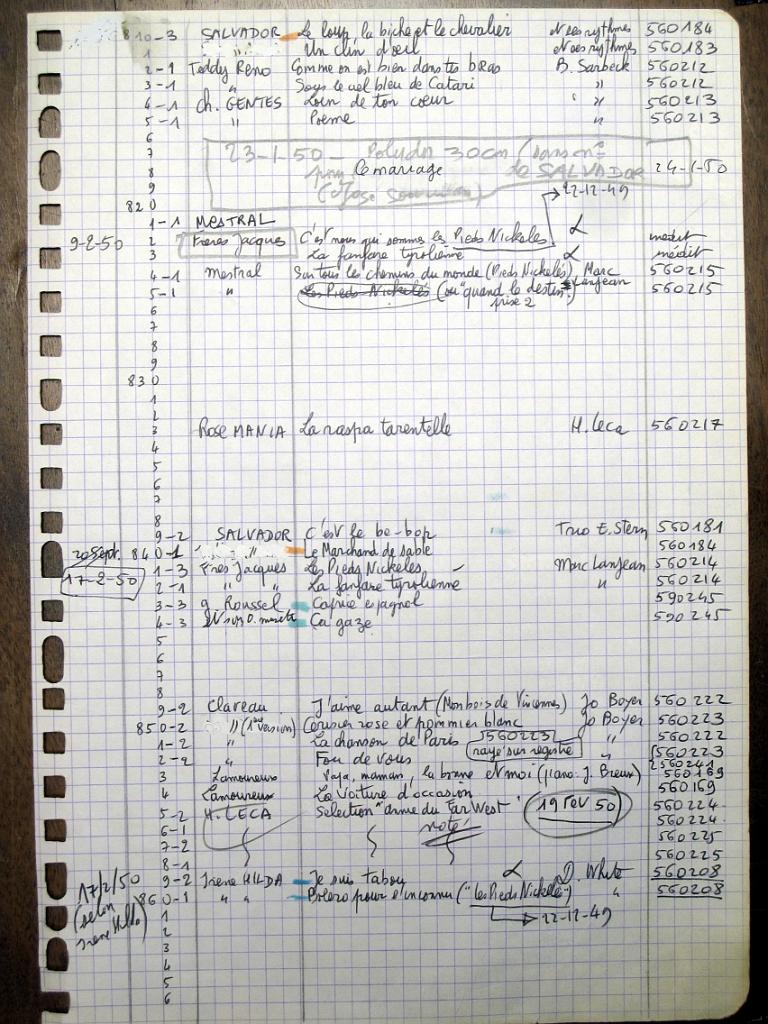 810-3 SALVADOR Le loup, la biche et le chevalier Ns rythmes 560184
1 " Un clin d'œil Ns rythmes 560183
2-1 Teddy Reno Comme on est bien dans tes bras B. Sarbeck 560212
3-1 " Sous le ciel bleu de Catari " 560212
4-1 Ch. GENTES Loin de ton cœur " 560213
5-1 " Poème " 560213
6
7 23-1-50 - Polydor 30cm (sans n°
8 pour le mariage de SALVADOR 24-1-50
9
820 22-12-49
1-1 MESTRAL
9-2-50 2 Frères Jacques C'est nous qui sommes les Pieds Nickelés inédit
3 La fanfare tyrolienne inédit
4-1 Mestral Sur tous les chemins du monde (Pieds Nickelés) Marc Lanjean 560215
5-1 " Les Pieds Nickelés (ou "quand le destin") 560215
6 prise 2
7
8
9
830
1
2
3 Rose MANIA La raspa tarentelle H. Leca 560217
4
5
6
7
8
9-2 SALVADOR C'est le be-bop Trio E. Stern 560181
20 Sept. 840-1 " Le Marchand de sable 560184
1-3 Fres Jacques Les Pieds Nickelés Marc Lanjean 560214
17-2-50 2-1 " " La fanfare tyrolienne " 560214
3-3 g. Roussel Caprice espagnol 590245
4-3 Ça gaze 590245
5
6
7
8
9-2 Claveau J'aime autant (Mon bois de Vincennes) Jo Boyer 560222
850-2 " (1ère version) Cerisier rose et pommier blanc Jo Boyer 560223
1-2 " La chanson de Paris 560223 " 560222
2-2 " Fou de vous rayé sur registre " 560223
560241
3 Lamoureux Papa, maman, la bonne et moi (piano: J. Breux) 560169
4 Lamoureux La voiture d'occasion 560169
5-2 H. LECA Selection "arme du Far West" 19 Fev 50 560224
6-1 noté 560224
7-2 560225
8-1 560225
17/2/50 9-2 Irene HILDA Je suis tabou D. White 560208
(selon 860-1 " " Boléro pour l'inconnu ("les Pieds Nickelés") " 560208
Irene Hilda) 1 22-12-49
2
3
4
5
6